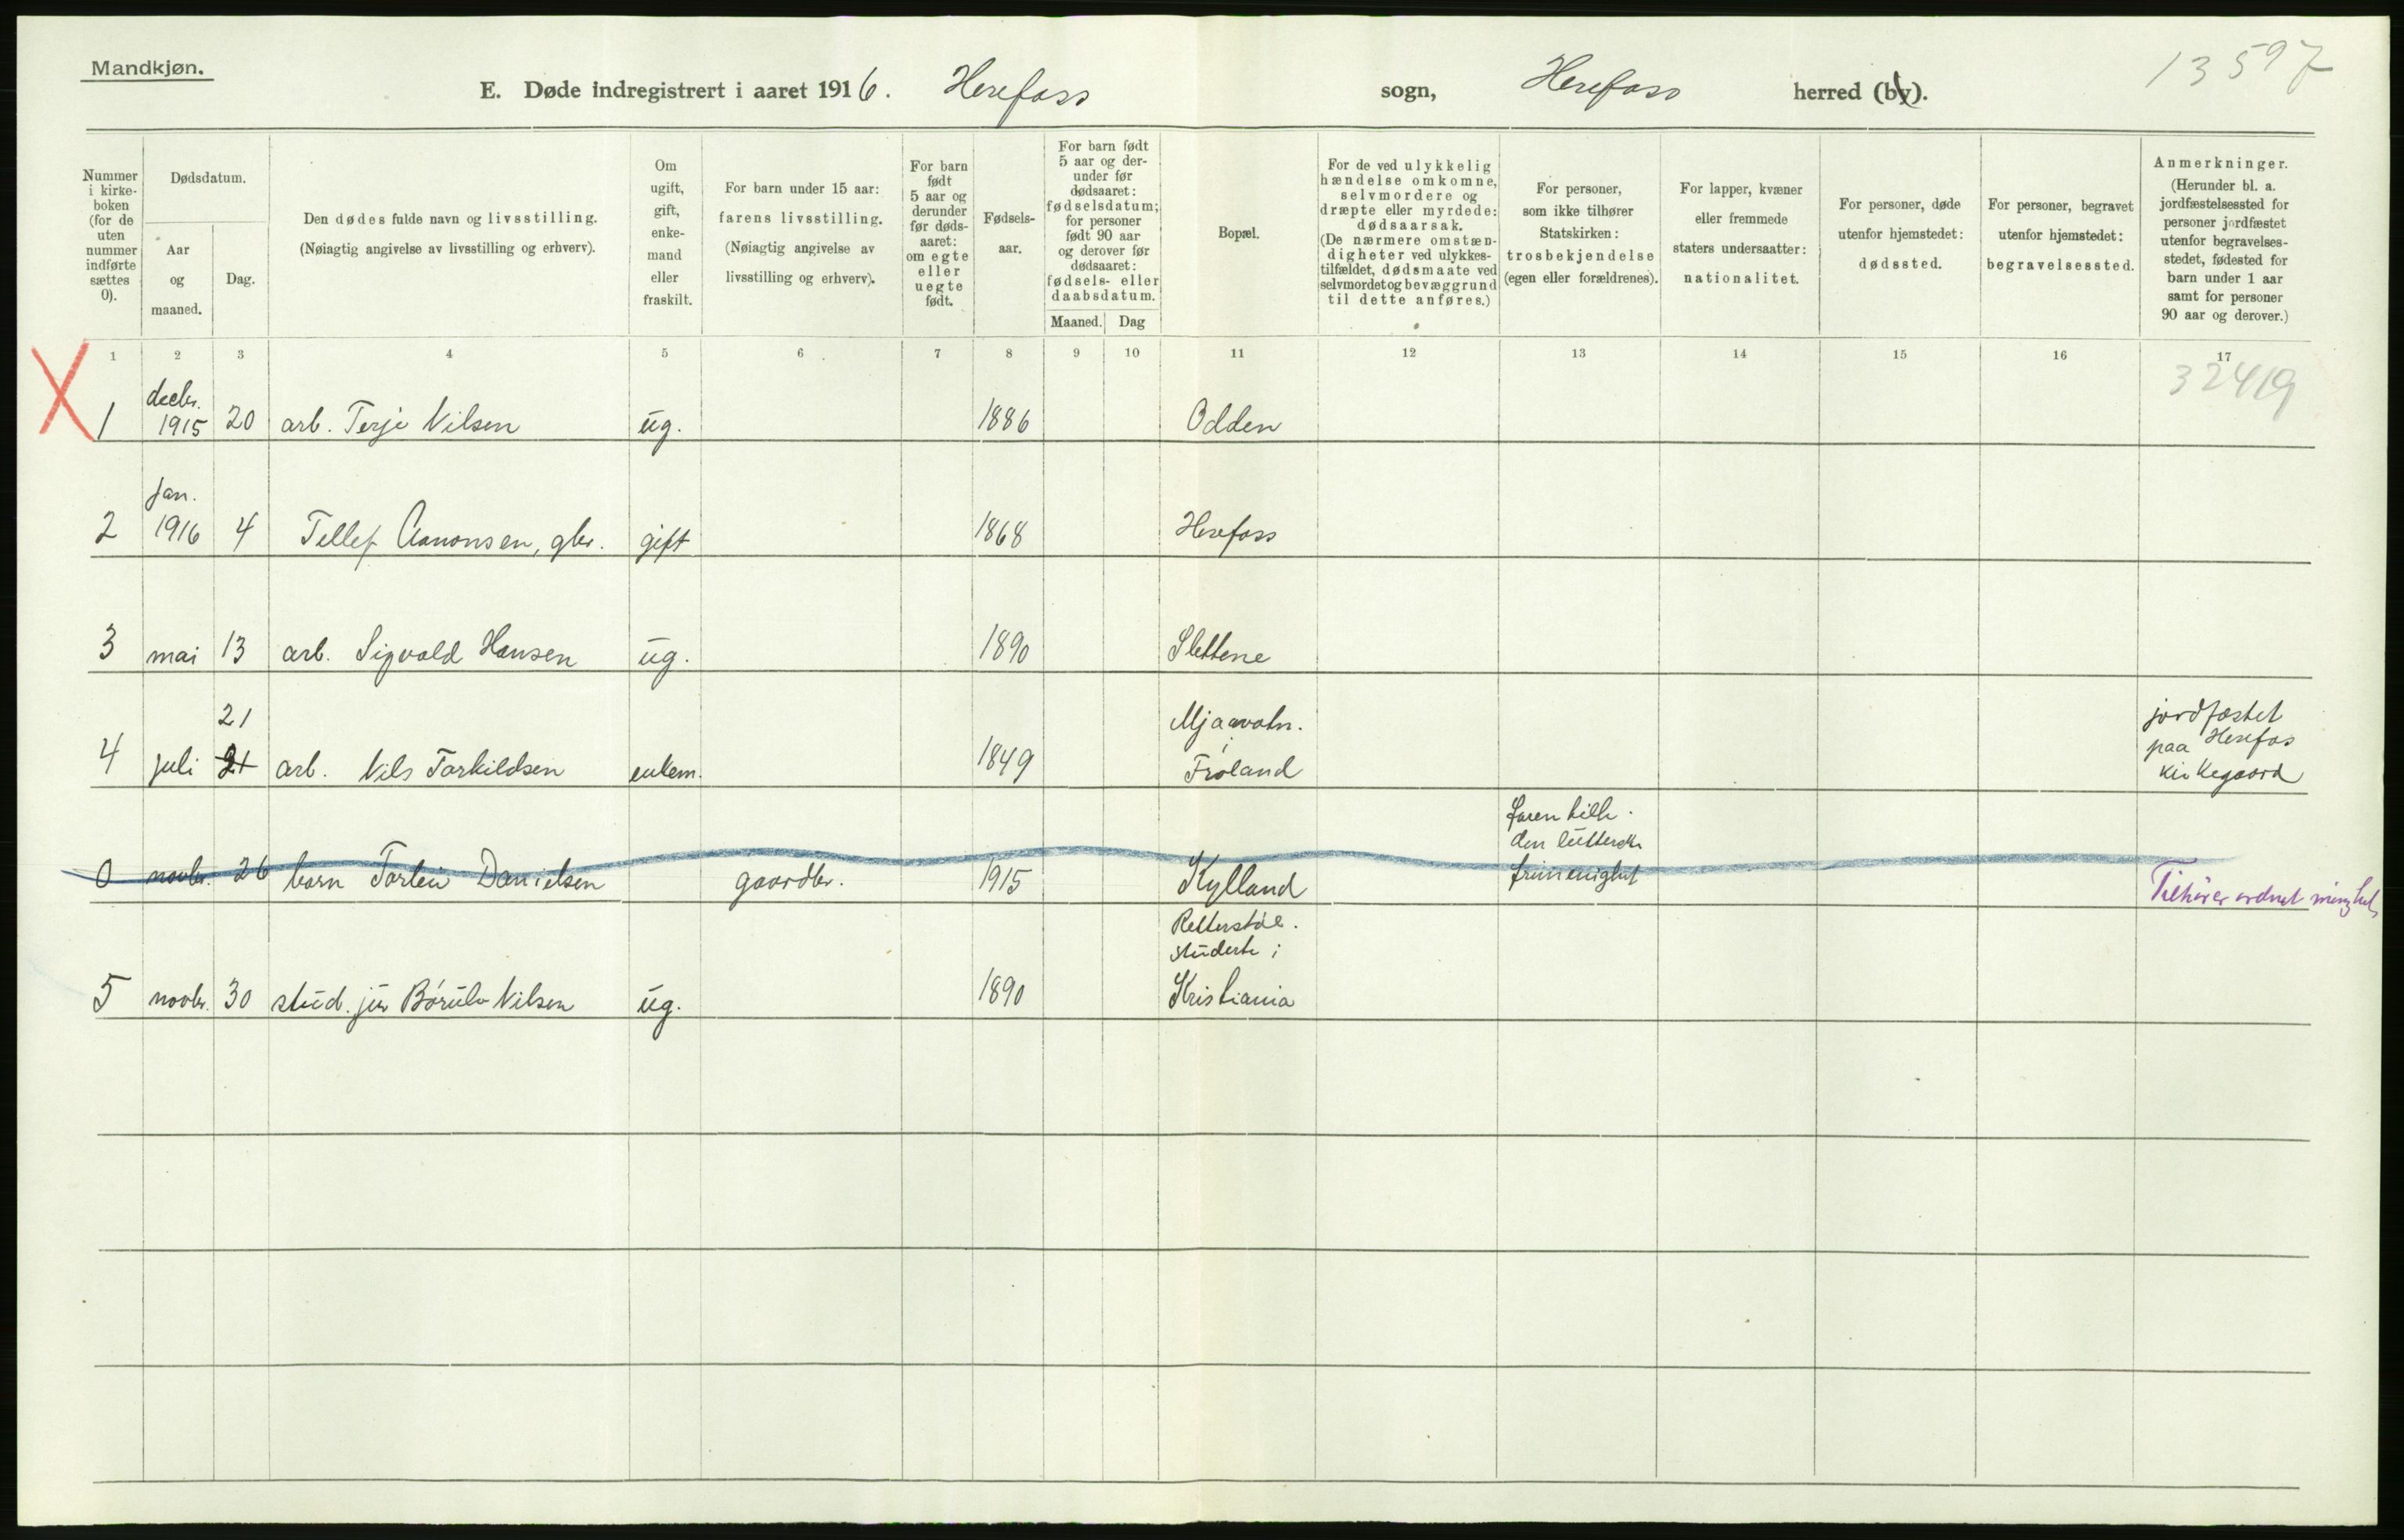 Mandkjøn.
E. Døde indregistrert i aaret 1916. Herefoss sogn, Herefoss herred (by).
13597
Nummer i kirke-boken (for de uten nummer indførte sættes 0).
Dødsdatum.
Aar og maaned.
Dag.
Den dødes fulde navn og livsstilling.
(Nøiagtig angivelse av livsstilling og erhverv).
Om ugift, gift, enke-mand eller fraskilt.
For barn under 15 aar: farens livsstilling.
(Nøiagtig angivelse av livsstilling og erhverv).
For barn født 5 aar og derunder før døds-aaret: om egte eller uegte født.
Fødsels-aar.
For barn født 5 aar og der-under før dødsaaret: fødselsdatum; for personer født 90 aar og derover før dødsaaret: fødsels- eller daabsdatum.
Maaned. Dag
Bopæl.
For de ved ulykkelig hændelse omkomne, selvmordere og dræpte eller myrdede: dødsaarsak.
(De nærmere omstæn-digheter ved ulykkes-tilfældet, dødsmaate ved selvmordet og bevæggrund til dette anføres.)
For personer, som ikke tilhører Statskirken: trosbekjendelse (egen eller forældrenes).
For lapper, kvæner eller fremmede staters undersaatter: nationalitet.
For personer, døde utenfor hjemstedet: dødssted.
For personer, begravet utenfor hjemstedet: begravelsessted.
Anmerkninger.
(Herunder bl. a. jordfæstelsessted for personer jordfæstet utenfor begravelses-stedet, fødested for barn under 1 aar samt for personer 90 aar og derover.)
1 2 3 4 5 6 7 8 9 10 11 12 13 14 15 16 17
32419
X
decbr.
1 1915 20 arb. Terje Nilsen ug. 1886 Odden
Jan.
2 1916 4 Tellef Aanonsen, gbr. gift 1868 Herefoss
3 mai 13 arb. Sigvald Hansen ug. 1890 Slettene
21 Mjaavatn. jordfæstet
i paa Herefos
4 juli 21 arb. Nils Torkildsen enkem. 1849 Froland kirkegaard
faren tilh.
den luthersk
0 novbr. 26 barn Torleiv Danielsen gaardbr. 1915 Kylland frimenighet Tilhører ordnet menighet
Retterstøl.
studerte i
5 novbr. 30 stud. jur Børulv Nilsen ug. 1890 Kristiania